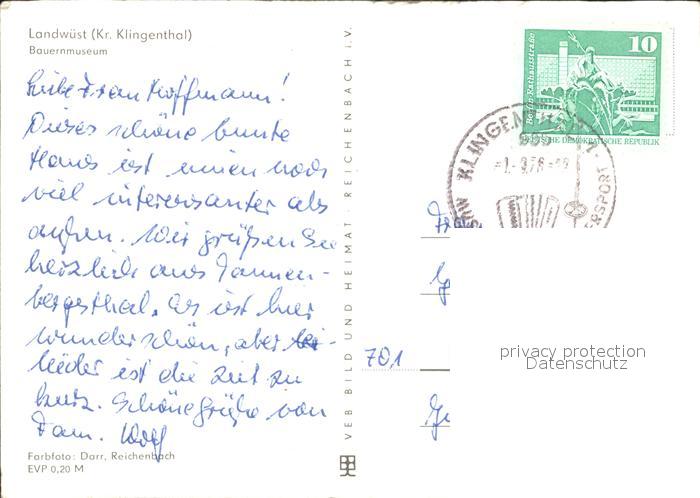 Landwüst (Kr. Klingenthal)
Bauernmuseum
Liebe Frau Hoffmann!
Dieses schöne bunte
Haus ist innen noch
viel interessanter als
außen. Wir grüßen Sie
herzlich aus Tannen-
bergsthal. Es ist hier
wunderschön, aber
leider ist die Zeit zu
kurz. Schöne Grüße von
Fam. Wolf
Farbfoto: Darr, Reichenbach
EVP 0,20 M
VEB BILD UND HEIMAT · REICHENBACH i.V.
10
Berlin, Rathausstraße
DEMOKRATISCHE REPUBLIK
KLINGENTHAL
701
privacy protection
Datenschutz